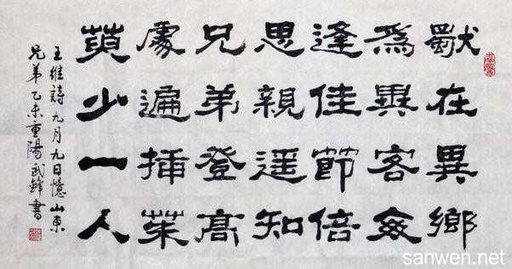 獨在異鄉
爲異客每
逢佳節倍
思親遥知
兄弟登高
處遍插茱
萸少一人
王維詩九月九日憶山東
兄弟乙未重陽武鋒書
sanwen.net